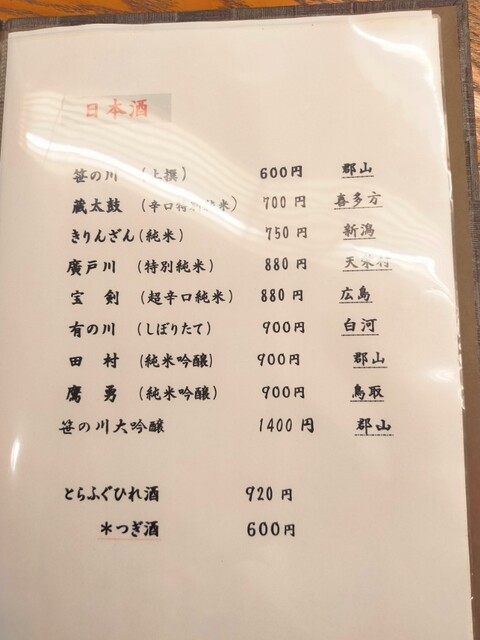 日本酒
笹の川 (上撰) 600円 郡山
蔵太鼓 (辛口特別純米) 700円 喜多方
きりんざん(純米) 750円 新潟
廣戸川 (特別純米) 880円 天栄村
宝 剣 (超辛口純米) 880円 広島
有の川 (しぼりたて) 900円 白河
田 村 (純米吟醸) 900円 郡山
鷹 勇 (純米吟醸) 900円 鳥取
笹の川大吟醸 1400円 郡山
とらふぐひれ酒 920円
*つぎ酒 600円